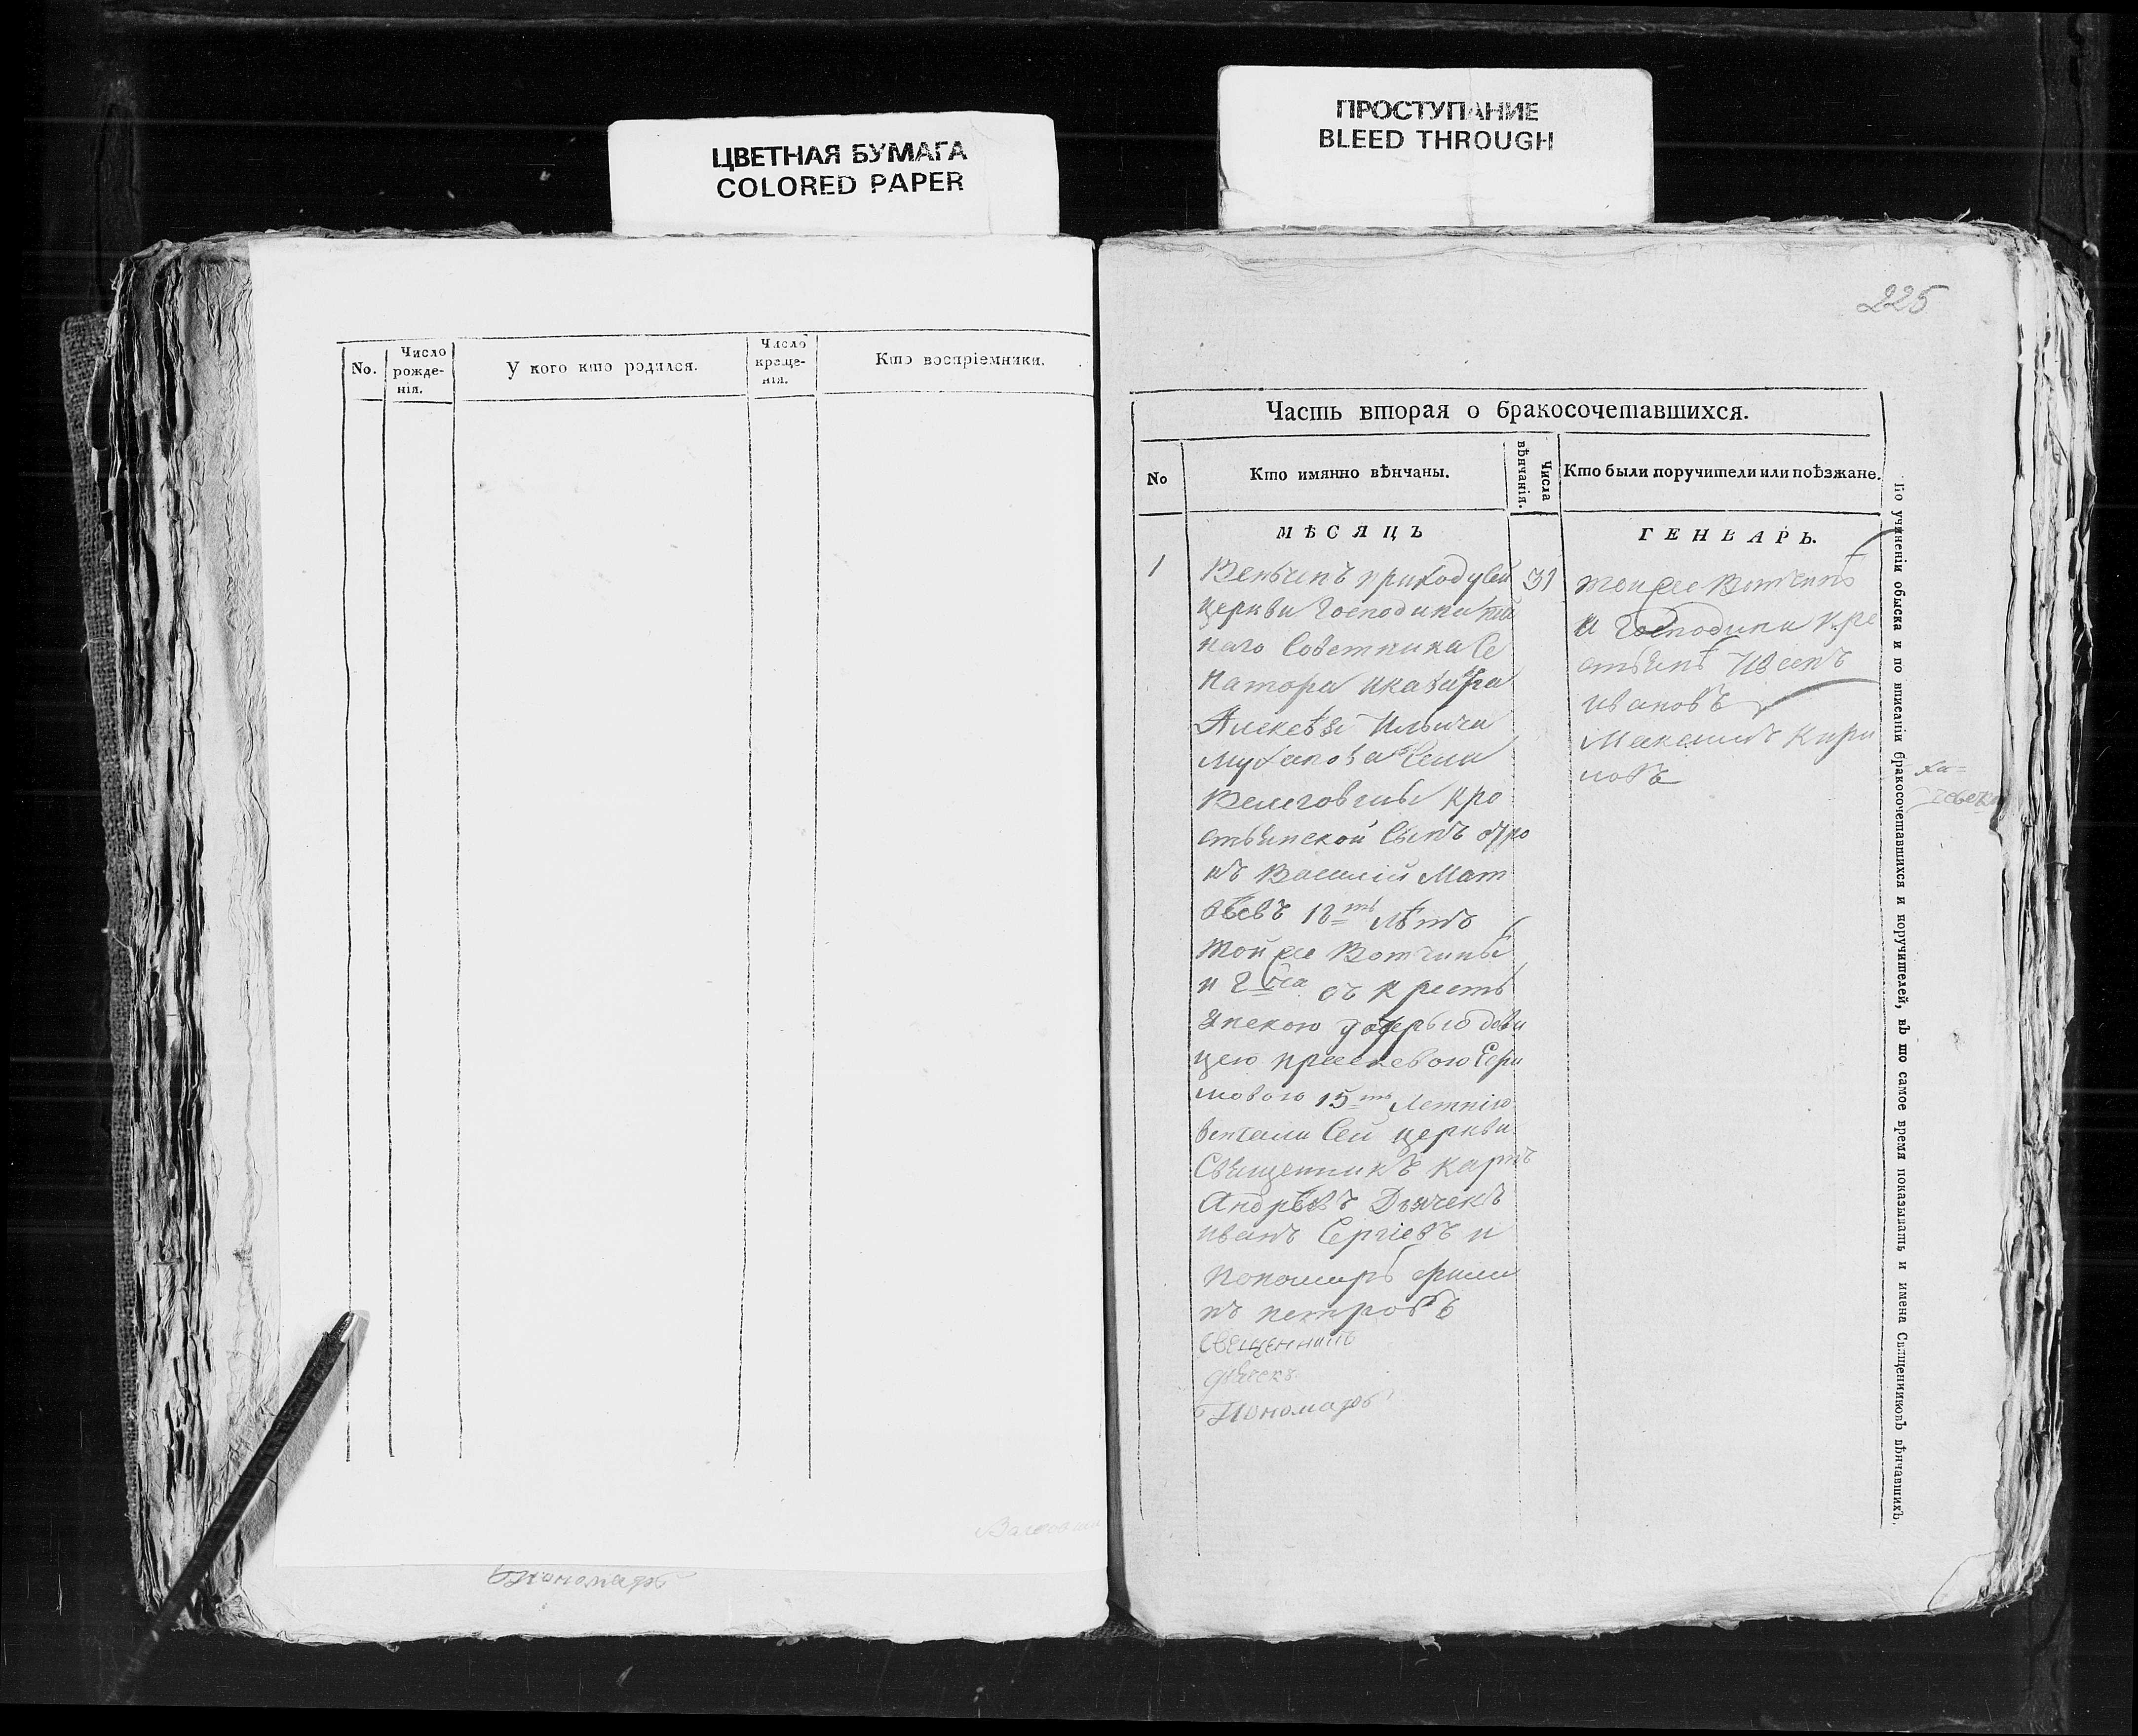 ЦВЕТНАЯ БУМАГА
COLORED PAPER
ПРОСТУПАНИЕ
BLEED THROUGH
No.
Число рожде-нія.
У кого кто родился.
Число креще-нія.
Кто воспріемники.
Пономарь
225
Часть вторая о бракосочетавшихся.
No
Кто имянно вѣнчаны.
Числа вѣнчанія.
Кто были поручители или поѣзжане.
МѢСЯЦЪ
ГЕНВАРЬ.
1
Венчен приходу сей
церкви Господина тай
наго Советника Се
натора и кавалера
Алексѣя Ильича
Муханова села
крѣ
стьянской Сынъ отро
къ Василий Мат
вѣевъ 18 ть лѣтъ
той же Вотчины
и Г на съ кресть
янскою дочерью деви
цею прасковою
мовою 15 ть Летнию
венчали Сей церкви
Священникъ карпъ
Андрѣевъ Дьячекъ
иванъ Сергіевъ и
пономарь фили
пъ петровъ
Священникъ
дьячекъ
Пономарь
31
той же Вотчины
и Господина кре
стьяне
ивановъ
Максимъ кири
ловъ
По учиненіи обыска и по вписаніи бракосочетавшихся и поручителей, въ то самое время показывать и имена Священниковъ вѣнчавшихъ.